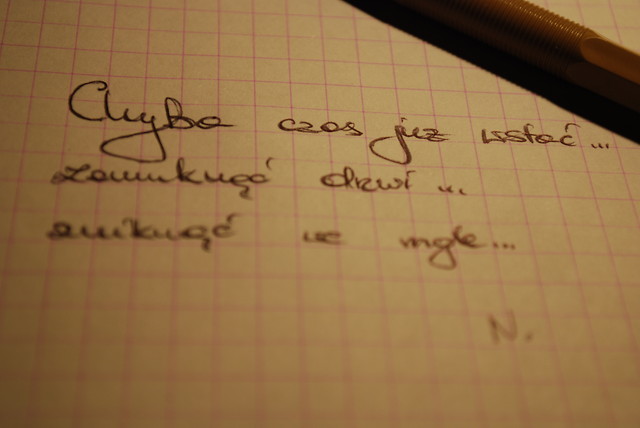 Chyba czas już wstać...
zamknąć drzwi...
zniknąć we mgle...
N.